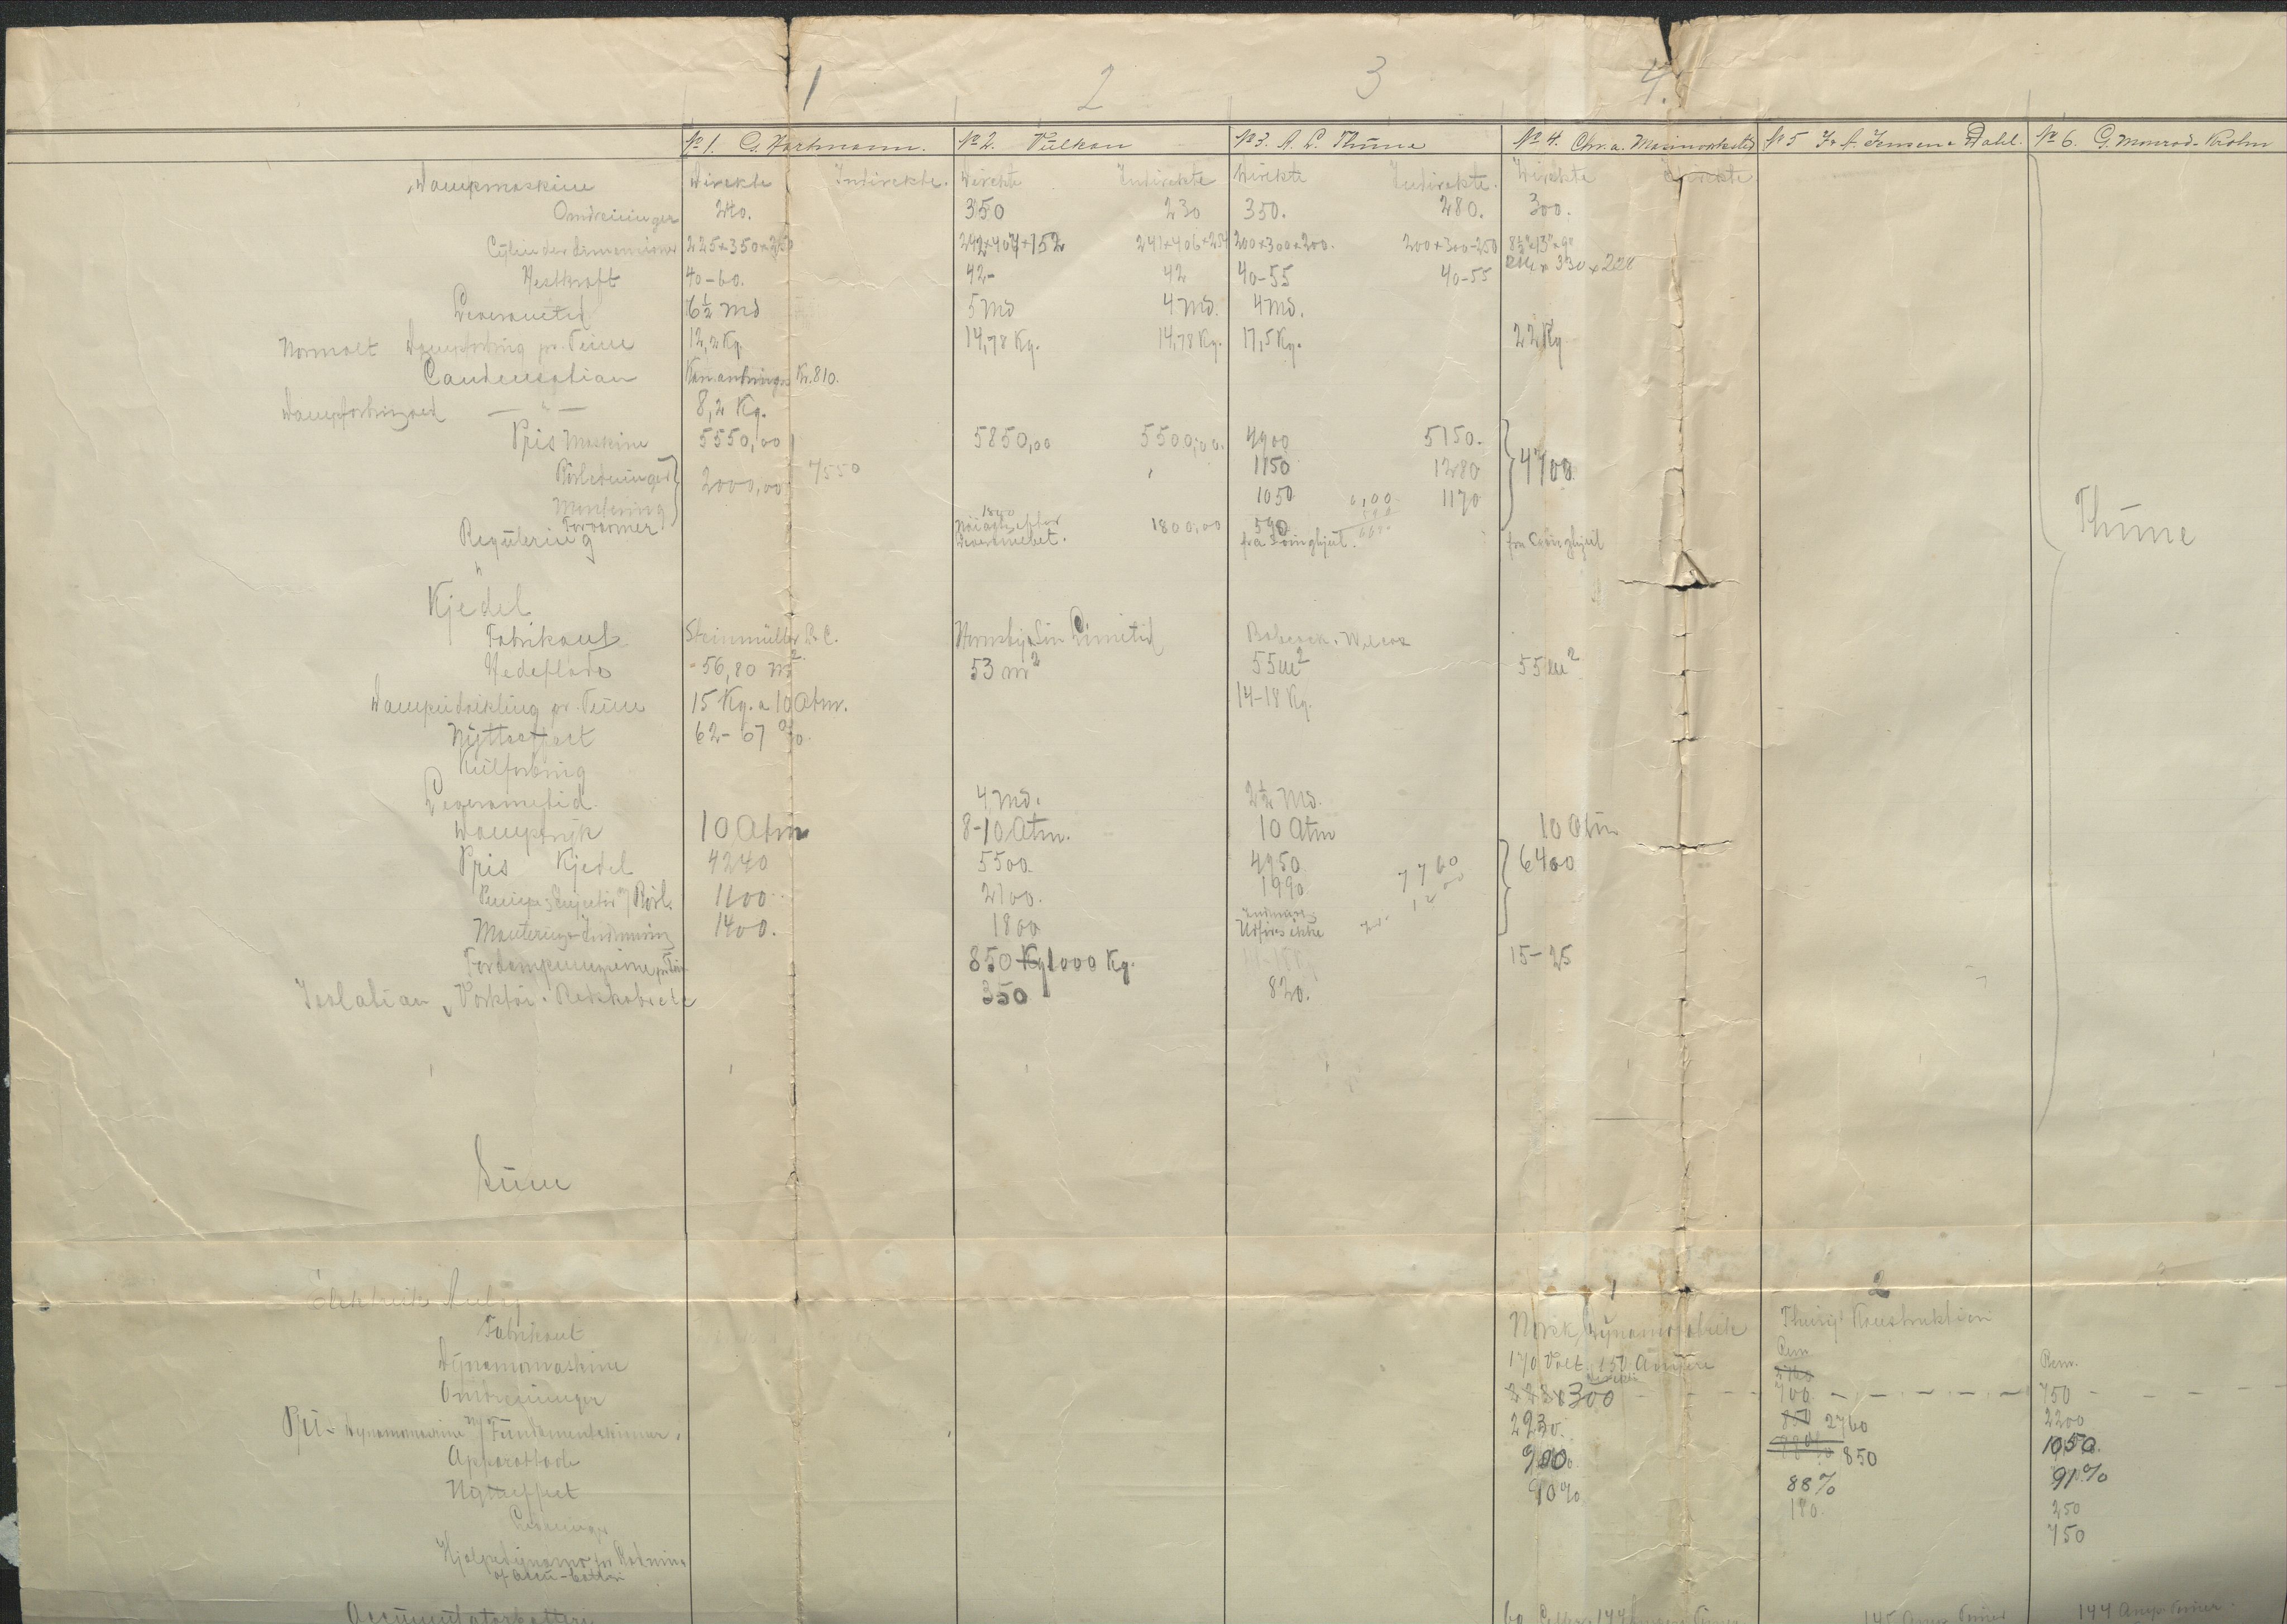 1 2 3 4.
No 1. G. Hartmann. No 2. Vulkan No 3. A. L. Thüne No 4. Chr.a. No 5 Fr. A. Jensen & Dahl. No 6. G. Monrad-Krohn
Dampmaskine Direkte Indirekte. Direkte Indirekte Direkte Indirekte. Direkte
Omdreininger 240. 350 230 350. 280. 300.
Cylinderdimensioner 225×350× 242×407×152 241×406× 200×300×200. 200×300-250 8½"×13"×9"
× 330 × 228
Hestkraft 40-60. 42- 42 40-55 40-55
Leverancetid 6½ Md 5 Md 4 Md. 4 Md.
Normalt Dampforbrug pr. Time 12,2 Kg. 14,78 Kg. 14,78 Kg. 17,5 Kg. 22 Kg
Condensation Kan anbringes Kr. 810.
Dampforbrug ved — " — 8,2 Kg.
Pris Maskine 5550,00 5850,00 5500,00. 4900 5150.
Rörledninger 2000,00 7550 1150 1280 4700
Montering 1050 1170
Forvarmer 1800 1800,00 590
Regulering fra Svinghjul. fra Svinghjul
Thüne
"
Kjedel
Fabrikant Steinmüller Hornsby & Sön Limited Babcock & Wilcox
Hedeflade 56,80 m² 53 m² 55 m² 55 m²
Dampudvikling pr. Time 15 Kg. a 10 Atm. 14-18 Kg.
Nytteeffect 62-67 %
Kulforbrug
Leverancetid 4 Md. 2½ Md.
Damptryk 10 Atm 8-10 Atm. 10 Atm 10 Atm
Pris Kjedel 4240 5500. 4950 7760 6400
Pumpe, Injector Rörl. 1100 2100. 1990
Montering & Indmuring 1400. 1800 Indmuring
Udföres ikke
850 Kg 1000 Kg. 15-25
Isolation, 350 820.
Sum
1 2 3
Elektrisk Anlæg
Fabrikant Norsk Dynamofabrik Thury's Konstruktion
Dynamomaskine 170 Volt. 150 Ampére Rem Rem.
Omdreininger 300 700 750
Pris Dynamomaskine m/ Fundamentskinner. 2930. 850 2760 2200
Apparattavle 900 850 1050.
Nytteeffect 90% 88% 91%
Ledninger 180. 250
Hjelpedynamo for Ladning 750
af Accu-batteri
Accumulatorbatteri 60 Celler 144 145 Amp. Timer 144 Amp. Timer.